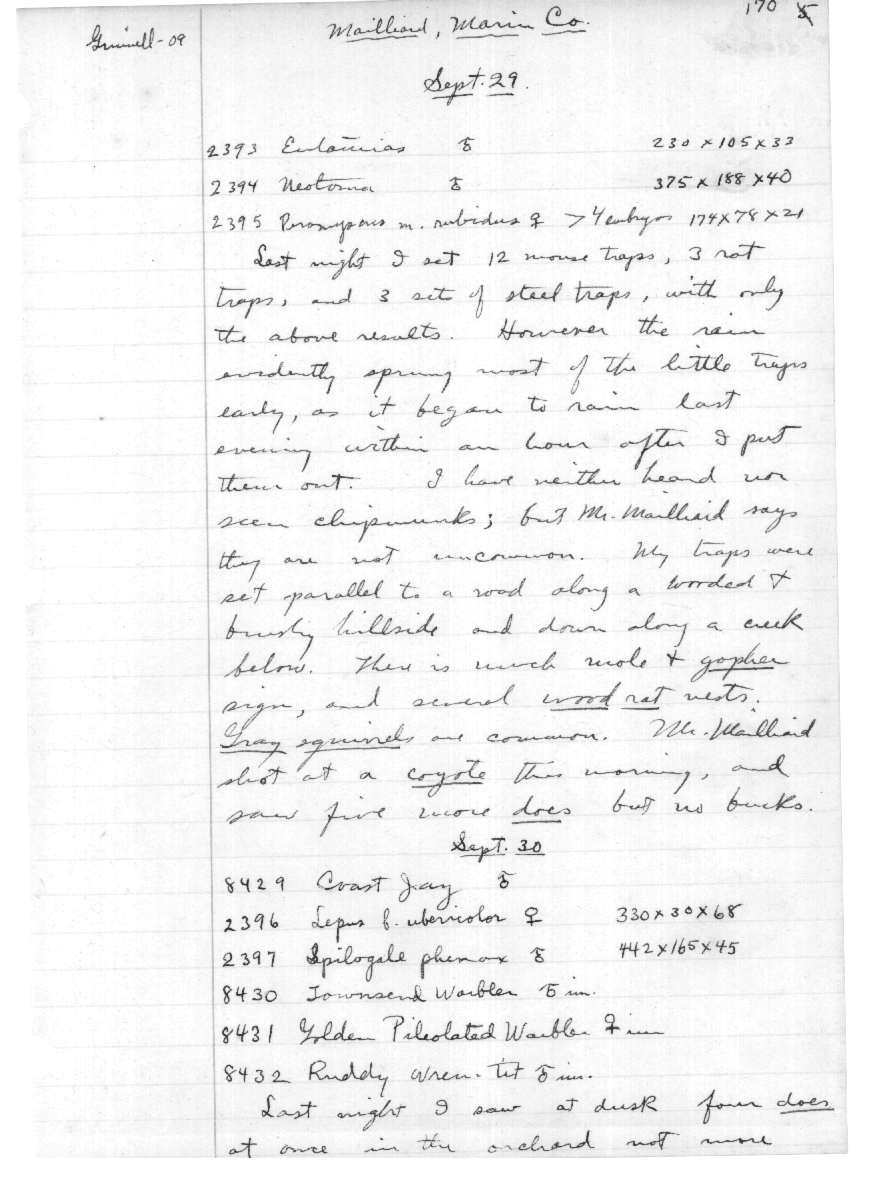 Grinnell-09
Mailliard, Marin Co.
170
Sept. 29.
2393 Eutamias ♂ 230 x 105 x 33
2394 Neotoma ♂ 375 x 188 x 40
2395 Peromyscus m. rubidus ♀ > 4 embryos 174 x 78 x 21
Last night I set 12 mouse traps, 3 rat
traps, and 3 sets of steel traps, with only
the above results. However the rain
evidently sprung most of the little traps
early, as it began to rain last
evening within an hour after I put
them out. I have neither heard nor
seen chipmunks; but Mr. Mailliard says
they are not uncommon. My traps were
set parallel to a road along a wooded &
brushy hillside and down along a creek
below. There is much mole & gopher
sign, and several wood rat nests.
Gray squirrels are common. Mr. Mailliard
shot at a coyote this morning, and
saw five more does but no bucks.
Sept. 30
8429 Coast Jay ♂
2396 Lepus b. ubericolor ♀ 330 x 30 x 68
2397 Spilogale phenax ♂ 442 x 165 x 45
8430 Townsend Warbler ♂ im.
8431 Golden Pileolated Warbler ♀ im
8432 Ruddy Wren-tit ♂ im.
Last night I saw at dusk four does
at once in the orchard not more